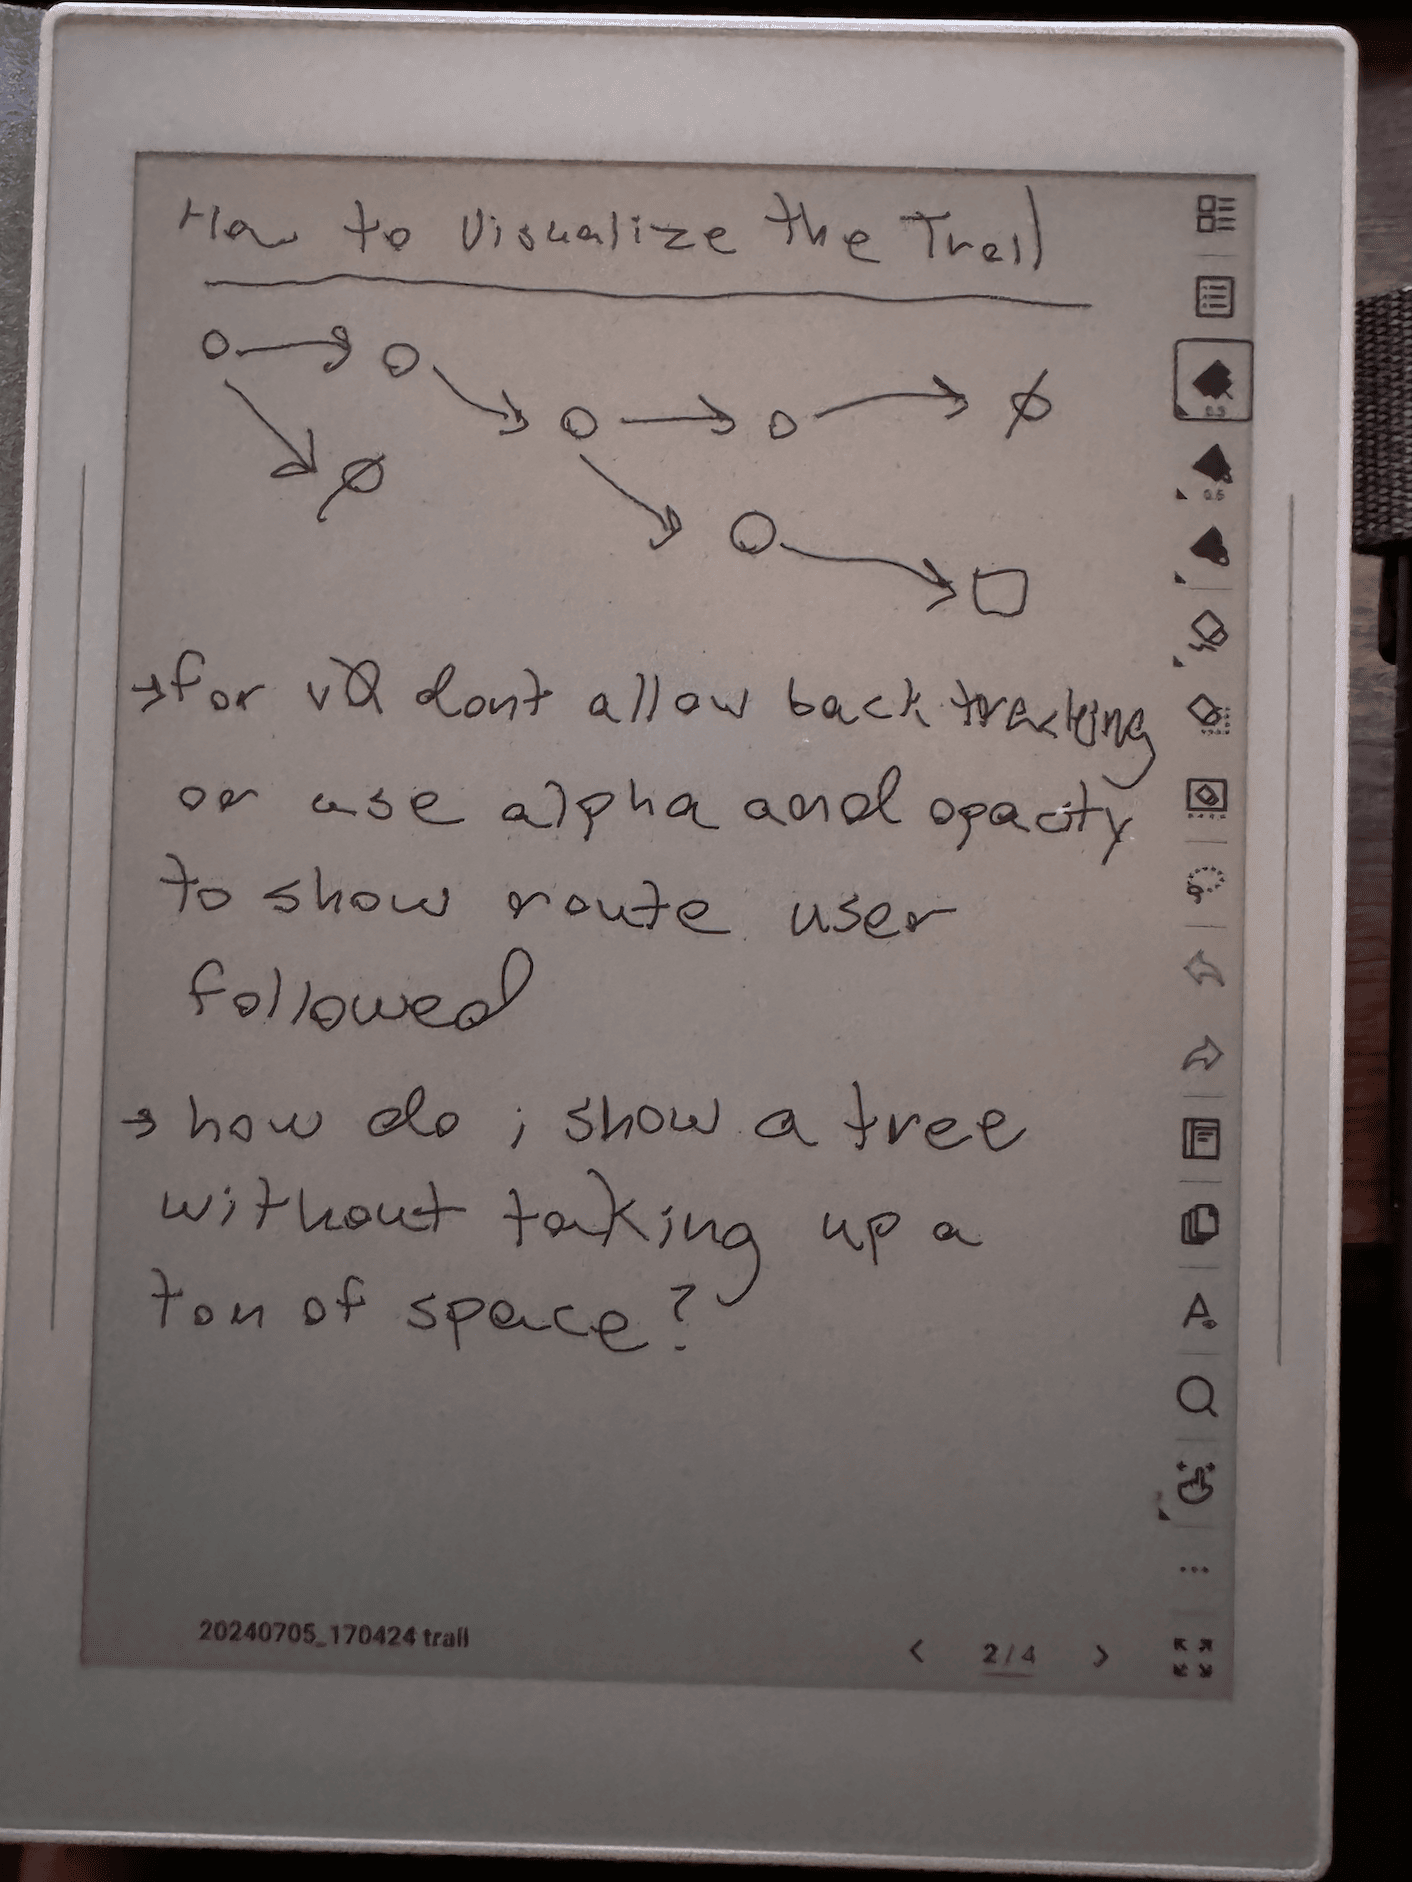 How to Visualize the Trail
→ for v0 dont allow back tracking
or use alpha and opacity
to show route user
followed
→ how do i show a tree
without taking up a
ton of space?
0.3
0.5
A
20240705_170424 trail
< 2 / 4 >